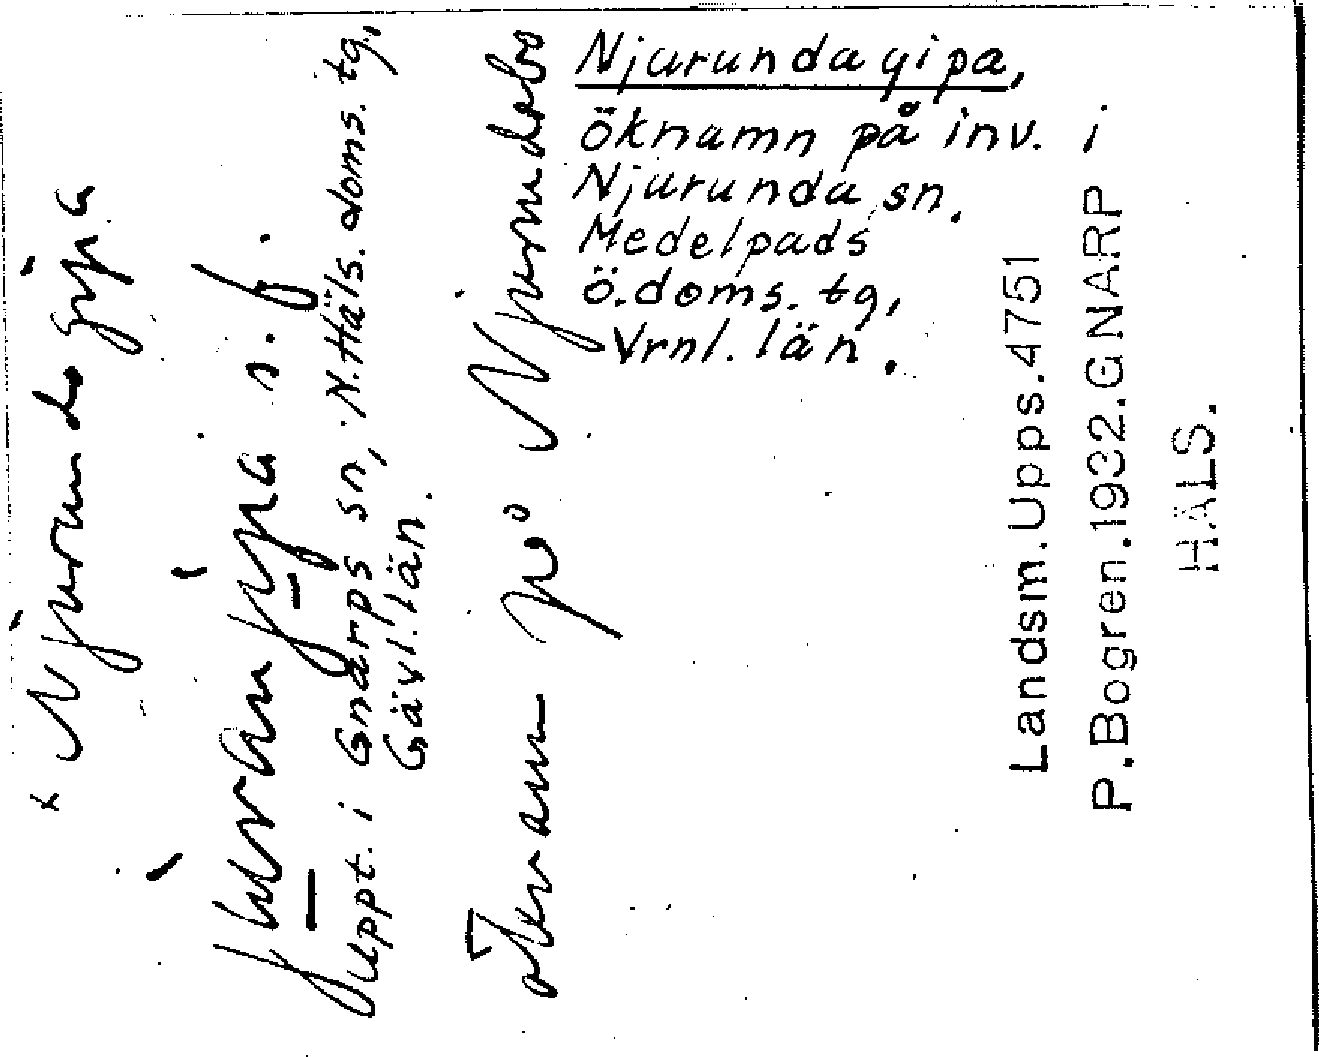 Njurundagipa,
öknamn på inv. i
Njurunda sn.
Medelpads
ö.doms.tg,
Vrnl. län.
Njurundagipa
s. f.
uppt. i Gnarps sn, N.Häls. doms. tg,
Gävl. län.
öknamn på Njurundabo
Landsm.Upps.4751
P.Bogren.1932.GNARP
HÄLS.